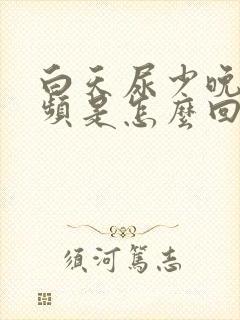 白天尿少晚
頻是怎麼回
須河篤志